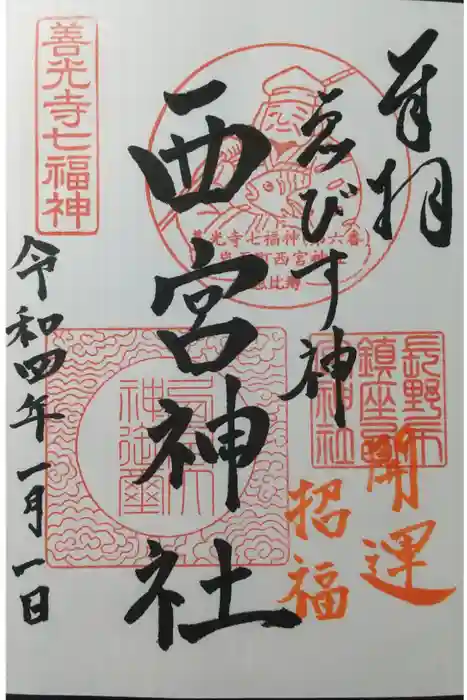 奉拝
開運
招福
ゑびす神
西宮神社
善光寺七福神
令和四年一月一日
善光寺七福神(第六番)
岩石町西宮神社
恵比寿
長野市
鎮座
神社